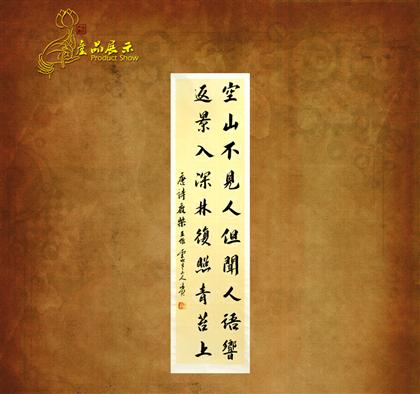 產品展示
Product Show
空山不見人但聞人語響
返景入深林復照青苔上
唐詩鹿柴王維